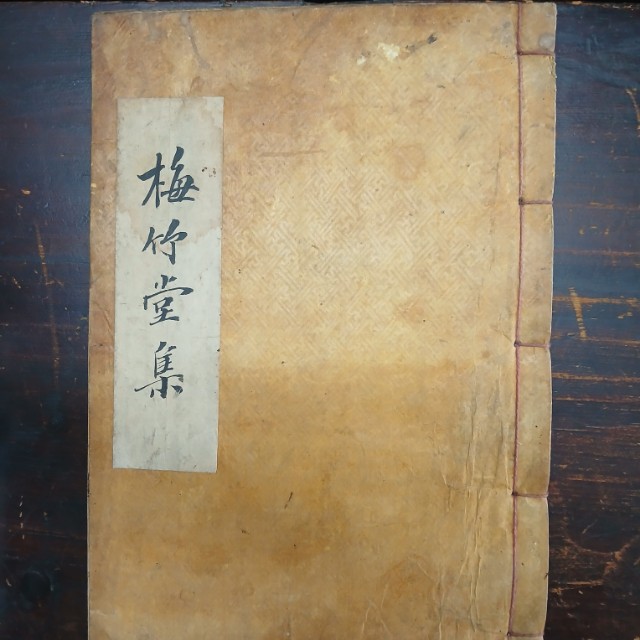 梅竹堂集